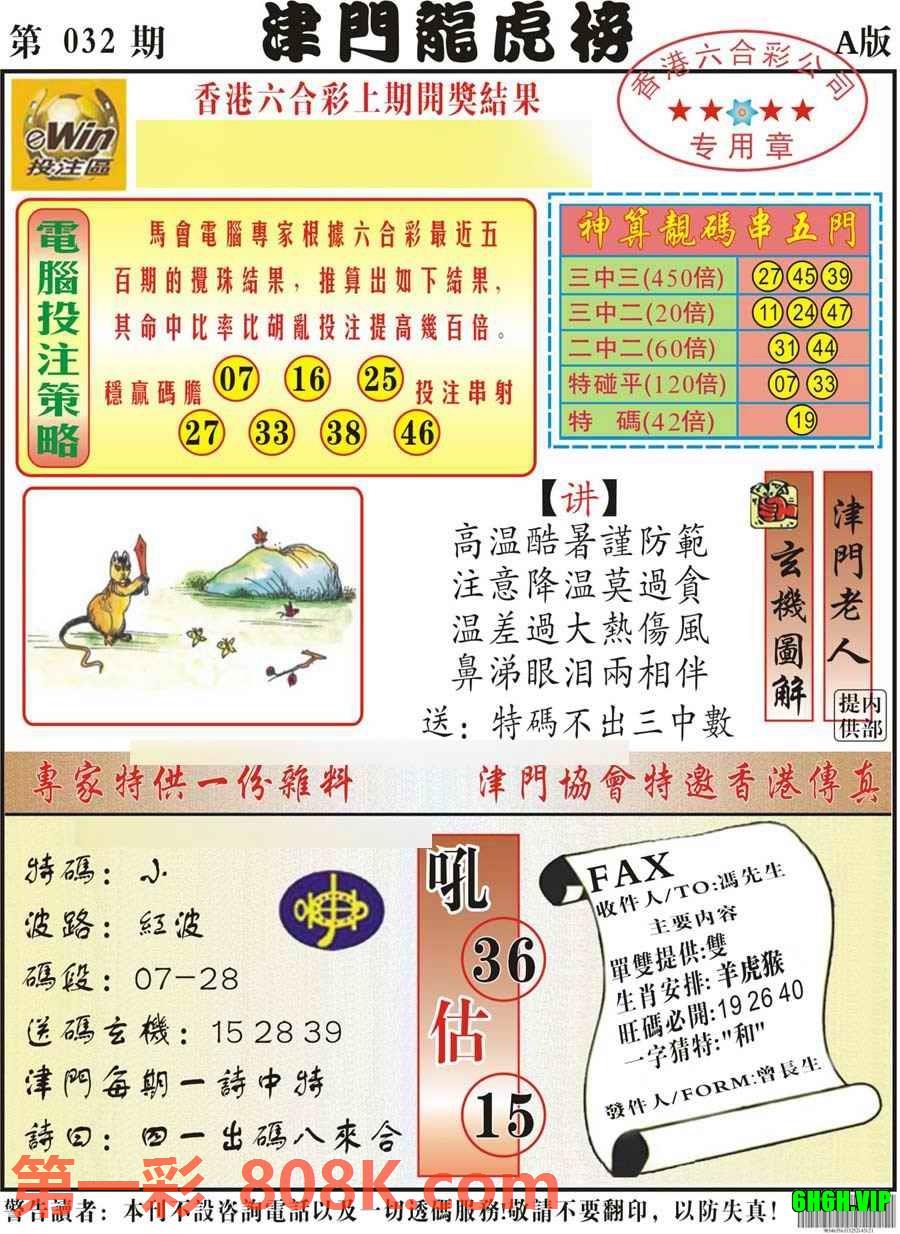 第 032 期
津門龍虎榜
A版
eWin
投注區
香港六合彩上期開獎結果
香港六合彩公司
专用章
電腦投注策略
馬會電腦專家根據六合彩最近五
百期的攪珠結果，推算出如下結果，
其命中比率比胡亂投注提高幾百倍。
穩贏碼膽 07 16 25 投注串射
27 33 38 46
神算靚碼串五門
三中三(450倍) 27 45 39
三中二(20倍) 11 24 47
二中二(60倍) 31 44
特碰平(120倍) 07 33
特 碼(42倍) 19
【讲】
高温酷暑謹防範
注意降温莫過貪
温差過大熱傷風
鼻涕眼泪兩相伴
送：特碼不出三中數
玄機圖解
津門老人
内部提供
專家特供一份雜料
津門協會特邀香港傳真
特碼：小
波路：紅波
碼段：07-28
送碼玄機：15 28 39
津門每期一詩中特
詩曰：四一出碼八來合
吼
36
估
15
FAX
收件人/TO:馮先生
主要内容
單雙提供:雙
生肖安排:羊虎猴
旺碼必開:19 26 40
一字猜特:"和"
發件人/FORM:曾長生
第一彩 808K.com
警告讀者：本刊不設咨詢電話以及一切透碼服務!敬請不要翻印，以防失真!
6H6H.VIP